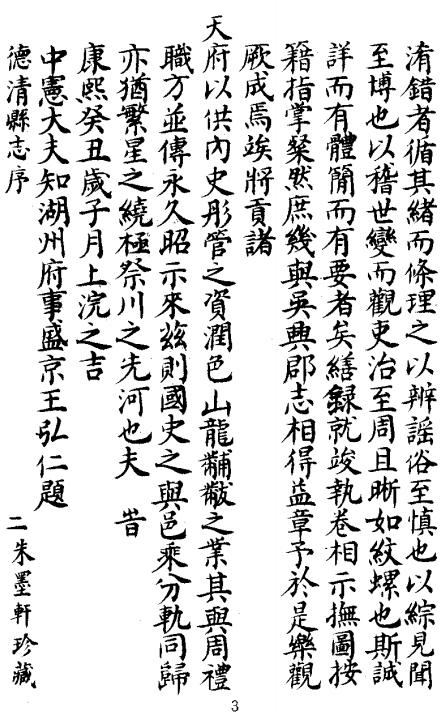 淆錯者循其緒而條理之以辨謠俗至慎也以綜見聞
至博也以稽世變而觀吏治至周且晰如紋螺也斯誠
詳而有體簡而有要者矣繕錄就竣執卷相示撫圖按
籍指掌粲然庶幾與吳興郡志相得益章予於是樂觀
厥成焉竢將貢諸
天府以供內史彤管之資潤色山龍黼黻之業其與周禮
職方並傳永久昭示來茲則國史之與邑乘分軌同歸
亦猶繁星之繞極祭川之先河也夫 旹
康熙癸丑歲子月上浣之吉
中憲大夫知湖州府事盛京王弘仁題
德清縣志序 二 朱墨軒珍藏
3